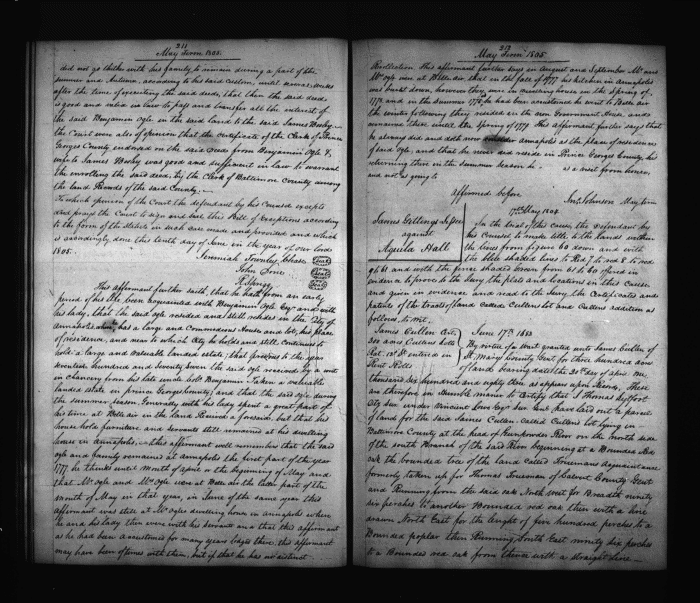 211
May Term 1805.
did not go thither with his family to remain during a part of the
summer and Autumn, according to his said custom, until several weeks
after the time of executing the said deed, that then the said deed
is good and valid in law to pass and transfer all the interest of
the said Benjamin Ogle in the said land to the said James
the Court were also of opinion that the certificate of the Clerk of Prince
Georges County endorsed on the said Deed from Benjamin Ogle &
wife to James was good and sufficient in law to warrant
the enrolling the said deed by the Clerk of Baltimore County among
the land Records of the said County.
To which opinion of the Court the defendant by his Counsel excepts
and prays the Court to sign and seal this Bill of Exceptions according
to the form of the statute in such case made and provided and which
is accordingly done this tenth day of June in the year of our Lord
1805.
Jeremiah Townley Chase
John Done
This affirmant further saith, that he hath from an early
period of his life, been acquainted with Benjamin Ogle Esqr and with
his lady, that the said Ogle resided and still resides in the City of
annapolis has a large and Commodious House and lot, his place
of residence, and near to which City he holds and still continues to
hold a large and valuable landed estate, that previous to the year
seventeen hundred and seventy seven the said Ogle received by a suit
in chancery from his late uncle Col. Benjamin a valuable
landed estate in prince Georges County, and that the said Ogle during
the summer season Generally with his lady spent a great part of
his time at Bell air in the land Received aforesaid, but that his
house hold furniture and servants still remained at his dwelling
house in annapolis. this affirmant well remembers that the said
Ogle and family remained at annapolis the first part of the year
1777, he thinks until month of April or the beginning of May and
that Mr Ogle and Mrs Ogle were at Bell air the latter part of the
month of May in that year, in June of the same year this
affirmant was still at Mr Ogles dwelling house in annapolis where
he and his lady then were with his servants and that this affirmant
as he had been accustomed for many years lodged there, this affirmant
may have been oftimes with them, but if that he has no distinct
212
May Term 1805.
Recollection This affirmant further says in August and September Mr and
Mrs Ogle were at Bell air, that in the fall of 1777 his kitchen in Annapolis
was burnt down, however they were in dwelling house in the Spring of
1778 and in the summer 1778 he had been accustomed he went to Bell air
the winter following they resided in the own Government House, and
remained there until the Spring of 1779 This affirmant further says that
he always did and doth now consider annapolis as the place of residence
of said Ogle, and that he never did reside in Prince Georges County, his
in the summer season he as a visit from home,
and not as going to
Affirmed before Jno Johnson May term
17th May 1804.
James Gittings Lessee
against
Aquila Hall
In the trial of this cause, the Defendant by
his Counsel to make title to the lands within
the lines from figure 60 down and with
the blue shaded lines to Red 7 to red 8 to red
9 & 61 and with the fence shaded Green from 61 to 60 offered in
evidence to prove to the Jury, the plats and locations in this cause
and gave in evidence and read to the Jury the Certificates and
patents of the tracts of land called Cullens Lot and Cullens addition as
follows, to wit.
James Cullen Crt.
300 acres Cullens Lott
Kent Rolls
June 17th 1683
By virtue of a Warrt granted unto James Cullen of
St. Marys County Gent for three hundred acres
of land bearing date the 20th day of April one
thousand six hundred and eighty three as appears upon Record, These
are therefore in humble manner to Certify that I Thomas Lytfoot
Dep Sur under Vincient Lowe Esqr Sur Genl have laid out a parcel
of land for the said James Cullen called Cullens Lot lying in
Baltimore County at the head of Gunpowder River on the north side
of the south Branch of the said River beginning at a Bounded Red
oak the bounded tree of the land called Truemans
formerly taken up for Thomas Trueman of Calvert County Gent
and Running from the said oak North West for Breadth ninety
six perches to another Bounded red oak then with a line
drawn North East for the length of five hundred perches to a
Bounded poplar then Running South East ninety six perches
to a Bounded red oak from thence with a straight line